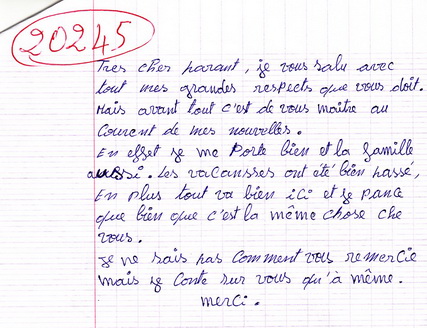 20245
Tres cher parant, je vous salu avec
tout mes grandes respects que vous doit.
Mais avant tout c'est de vous maitre au
Courent de mes nouvelles.
En effet je me Porte bien et la famille
aussi. Les vacansses ont été bien passé,
En plus tout va bien ici et je pance
que bien que c'est la même chose che
vous.
je ne sais pas Comment vous remercie
mais je Conte sur vous qu'à même.
merci.